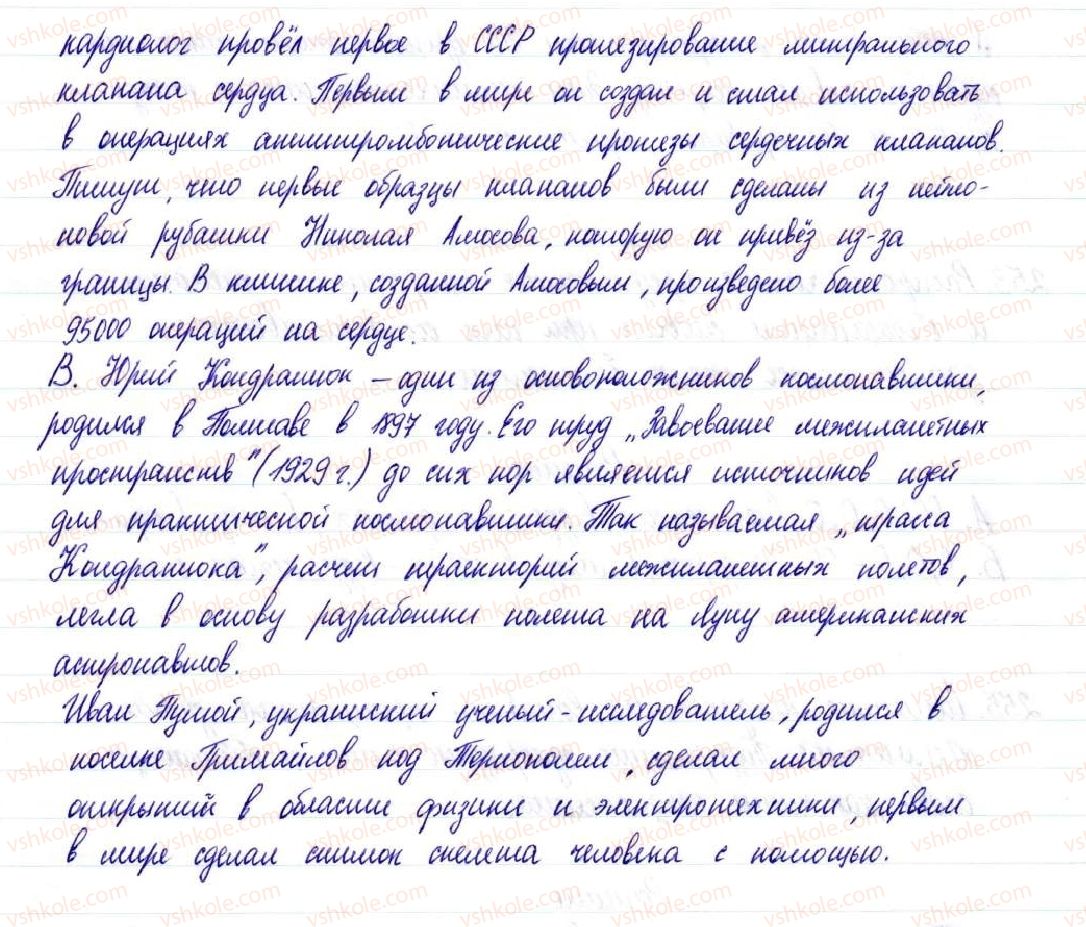 кардиолог провёл первое в СССР протезирование митрального
клапана сердца. Первым в мире он создал и стал использовать
в операциях антитромботические протезы сердечных клапанов.
Пишут, что первые образцы клапанов были сделаны из нейло-
новой рубашки Николая Амосова, которую он привёз из-за
границы. В клинике, созданной Амосовым, произведено более
95000 операций на сердце.
В. Юрий Кондратюк – один из основоположников космонавтики,
родился в Полтаве в 1897 году. Его труд „Завоевание межпланетных
пространств" (1929 г.) до сих пор является источников идей
для практической космонавтики. Так называемая „трасса
Кондратюка", расчет траекторий межпланетных полетов,
легла в основу разработки полета на Луну американских
астронавтов.
Иван Пулюй, украинский ученый-исследователь, родился в
поселке Гримайлов под Тернополем, сделал много
открытий в области физики и электротехники, первым
в мире сделал снимок скелета человека с помощью.
vshkole.com